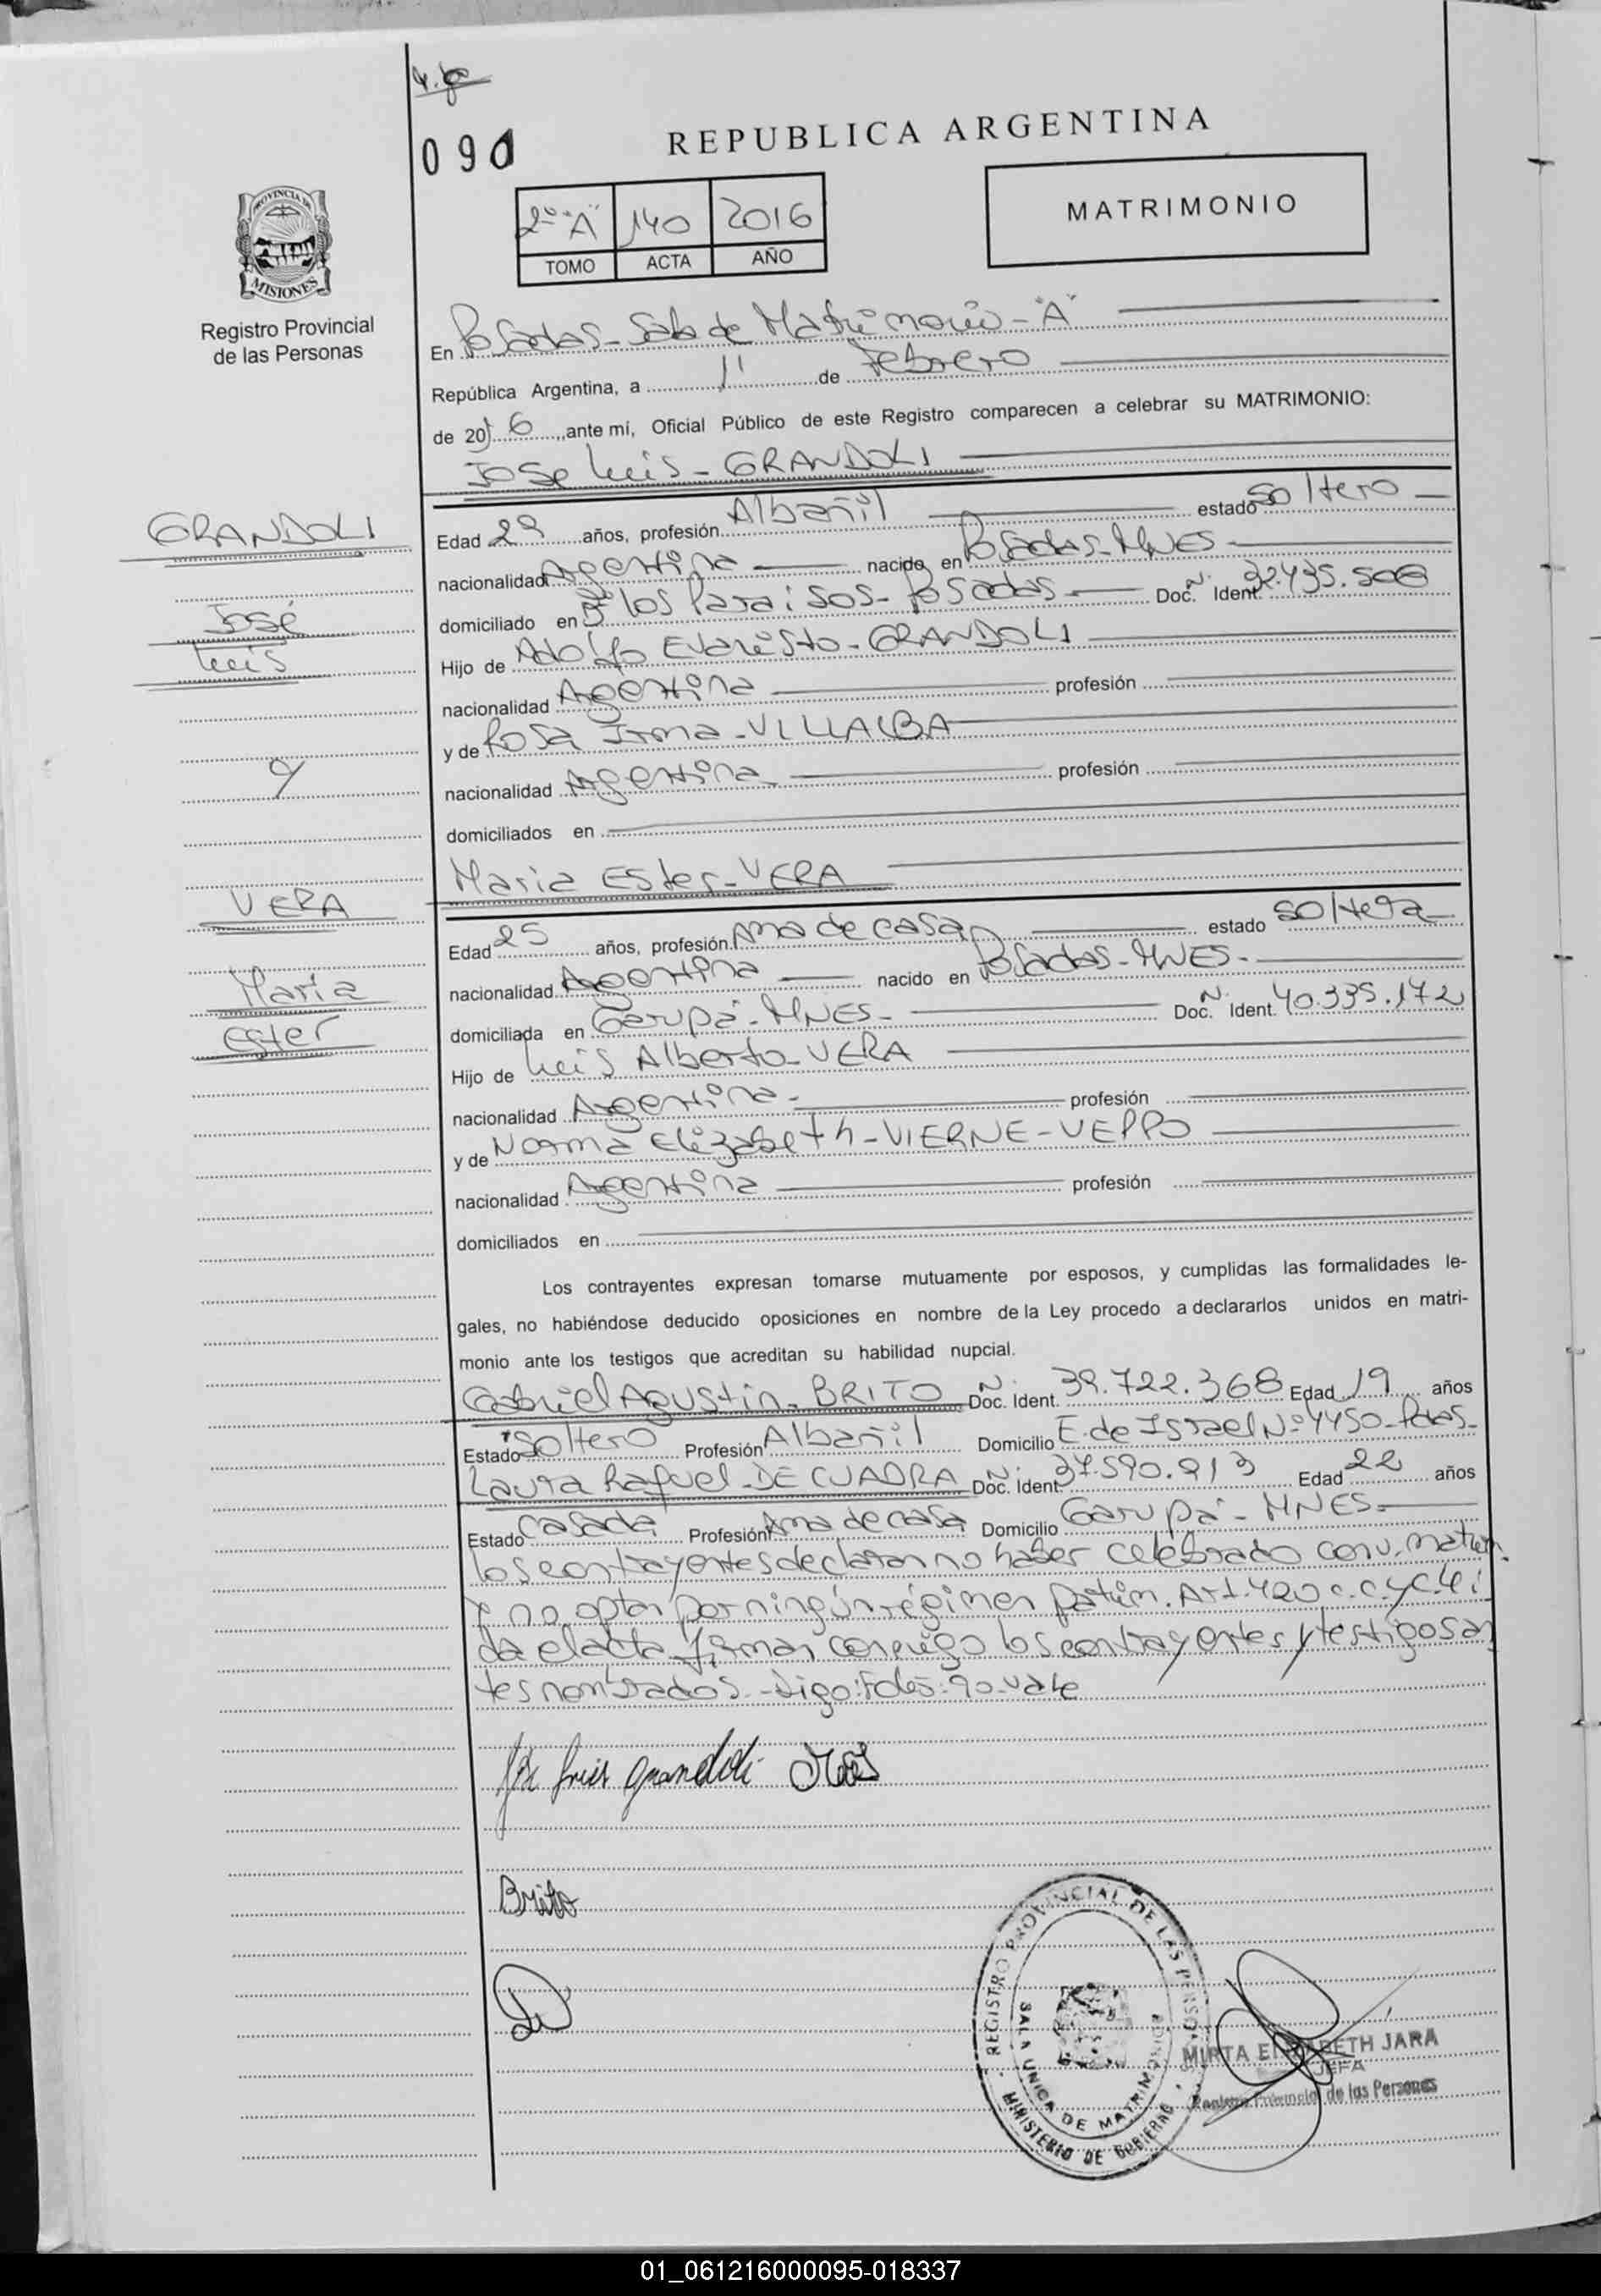 090
REPUBLICA ARGENTINA
MATRIMONIO
2º "A" 140 2016
TOMO ACTA AÑO
PROVINCIA DE
MISIONES
Registro Provincial
de las Personas
En Posadas - Sala de Matrimonio - "A"
República Argentina, a 11 de Febrero
de 2016, ante mí, Oficial Público de este Registro comparecen a celebrar su MATRIMONIO:
José Luis - GRANDOLI
GRANDOLI
José
Luis
y
VERA
María
Ester
Edad 29 años, profesión Albañil estado soltero
nacionalidad Argentina nacido en Posadas - MNES
domiciliado en Bº los Paraisos - Posadas Doc. Nº Ident. 32.435.506
Hijo de Adolfo Evaristo - GRANDOLI
nacionalidad Argentina profesión
y de Rosa Irma - VILLALBA
nacionalidad Argentina profesión
domiciliados en
Maria Ester - VERA
Edad 25 años, profesión Ama de casa estado soltera
nacionalidad Argentina nacido en Posadas - MNES -
domiciliada en Garupá - MNES - Doc. Nº Ident. 40.335.172
Hijo de Luis Alberto - VERA
nacionalidad Argentina - profesión
y de Norma Elizabeth - VIERNE - VEPPO
nacionalidad Argentina profesión
domiciliados en
Los contrayentes expresan tomarse mutuamente por esposos, y cumplidas las formalidades le-
gales, no habiéndose deducido oposiciones en nombre de la Ley procedo a declararlos unidos en matri-
monio ante los testigos que acreditan su habilidad nupcial.
Gabriel Agustín - BRITO Doc. Nº Ident. 39.722.368 Edad 19 años
Estado soltero Profesión Albañil Domicilio E. de Israel Nº 4450 - Pdas -
Laura Raquel - DE CUADRA Doc. Nº Ident. 37.590.913 Edad 22 años
Estado casada Profesión Ama de casa Domicilio Garupá - MNES -
los contrayentes declaran no haber celebrado conv. matrim.
y no optar por ningún régimen patrim. Art. 420 c.c.y c. lei
da el acta firman conmigo los contrayentes y testigos an
tes nombrados. - Digo: Folio: 90 - vale
José Luis Grandoli
Brito
REGISTRO PROVINCIAL DE LAS PERSONAS
SALA UNICA DE MATRIMONIO
MINISTERIO DE GOBIERNO
MIRTA ELIZABETH JARA
JEFA
Registro Provincial de las Personas
01_061216000095-018337